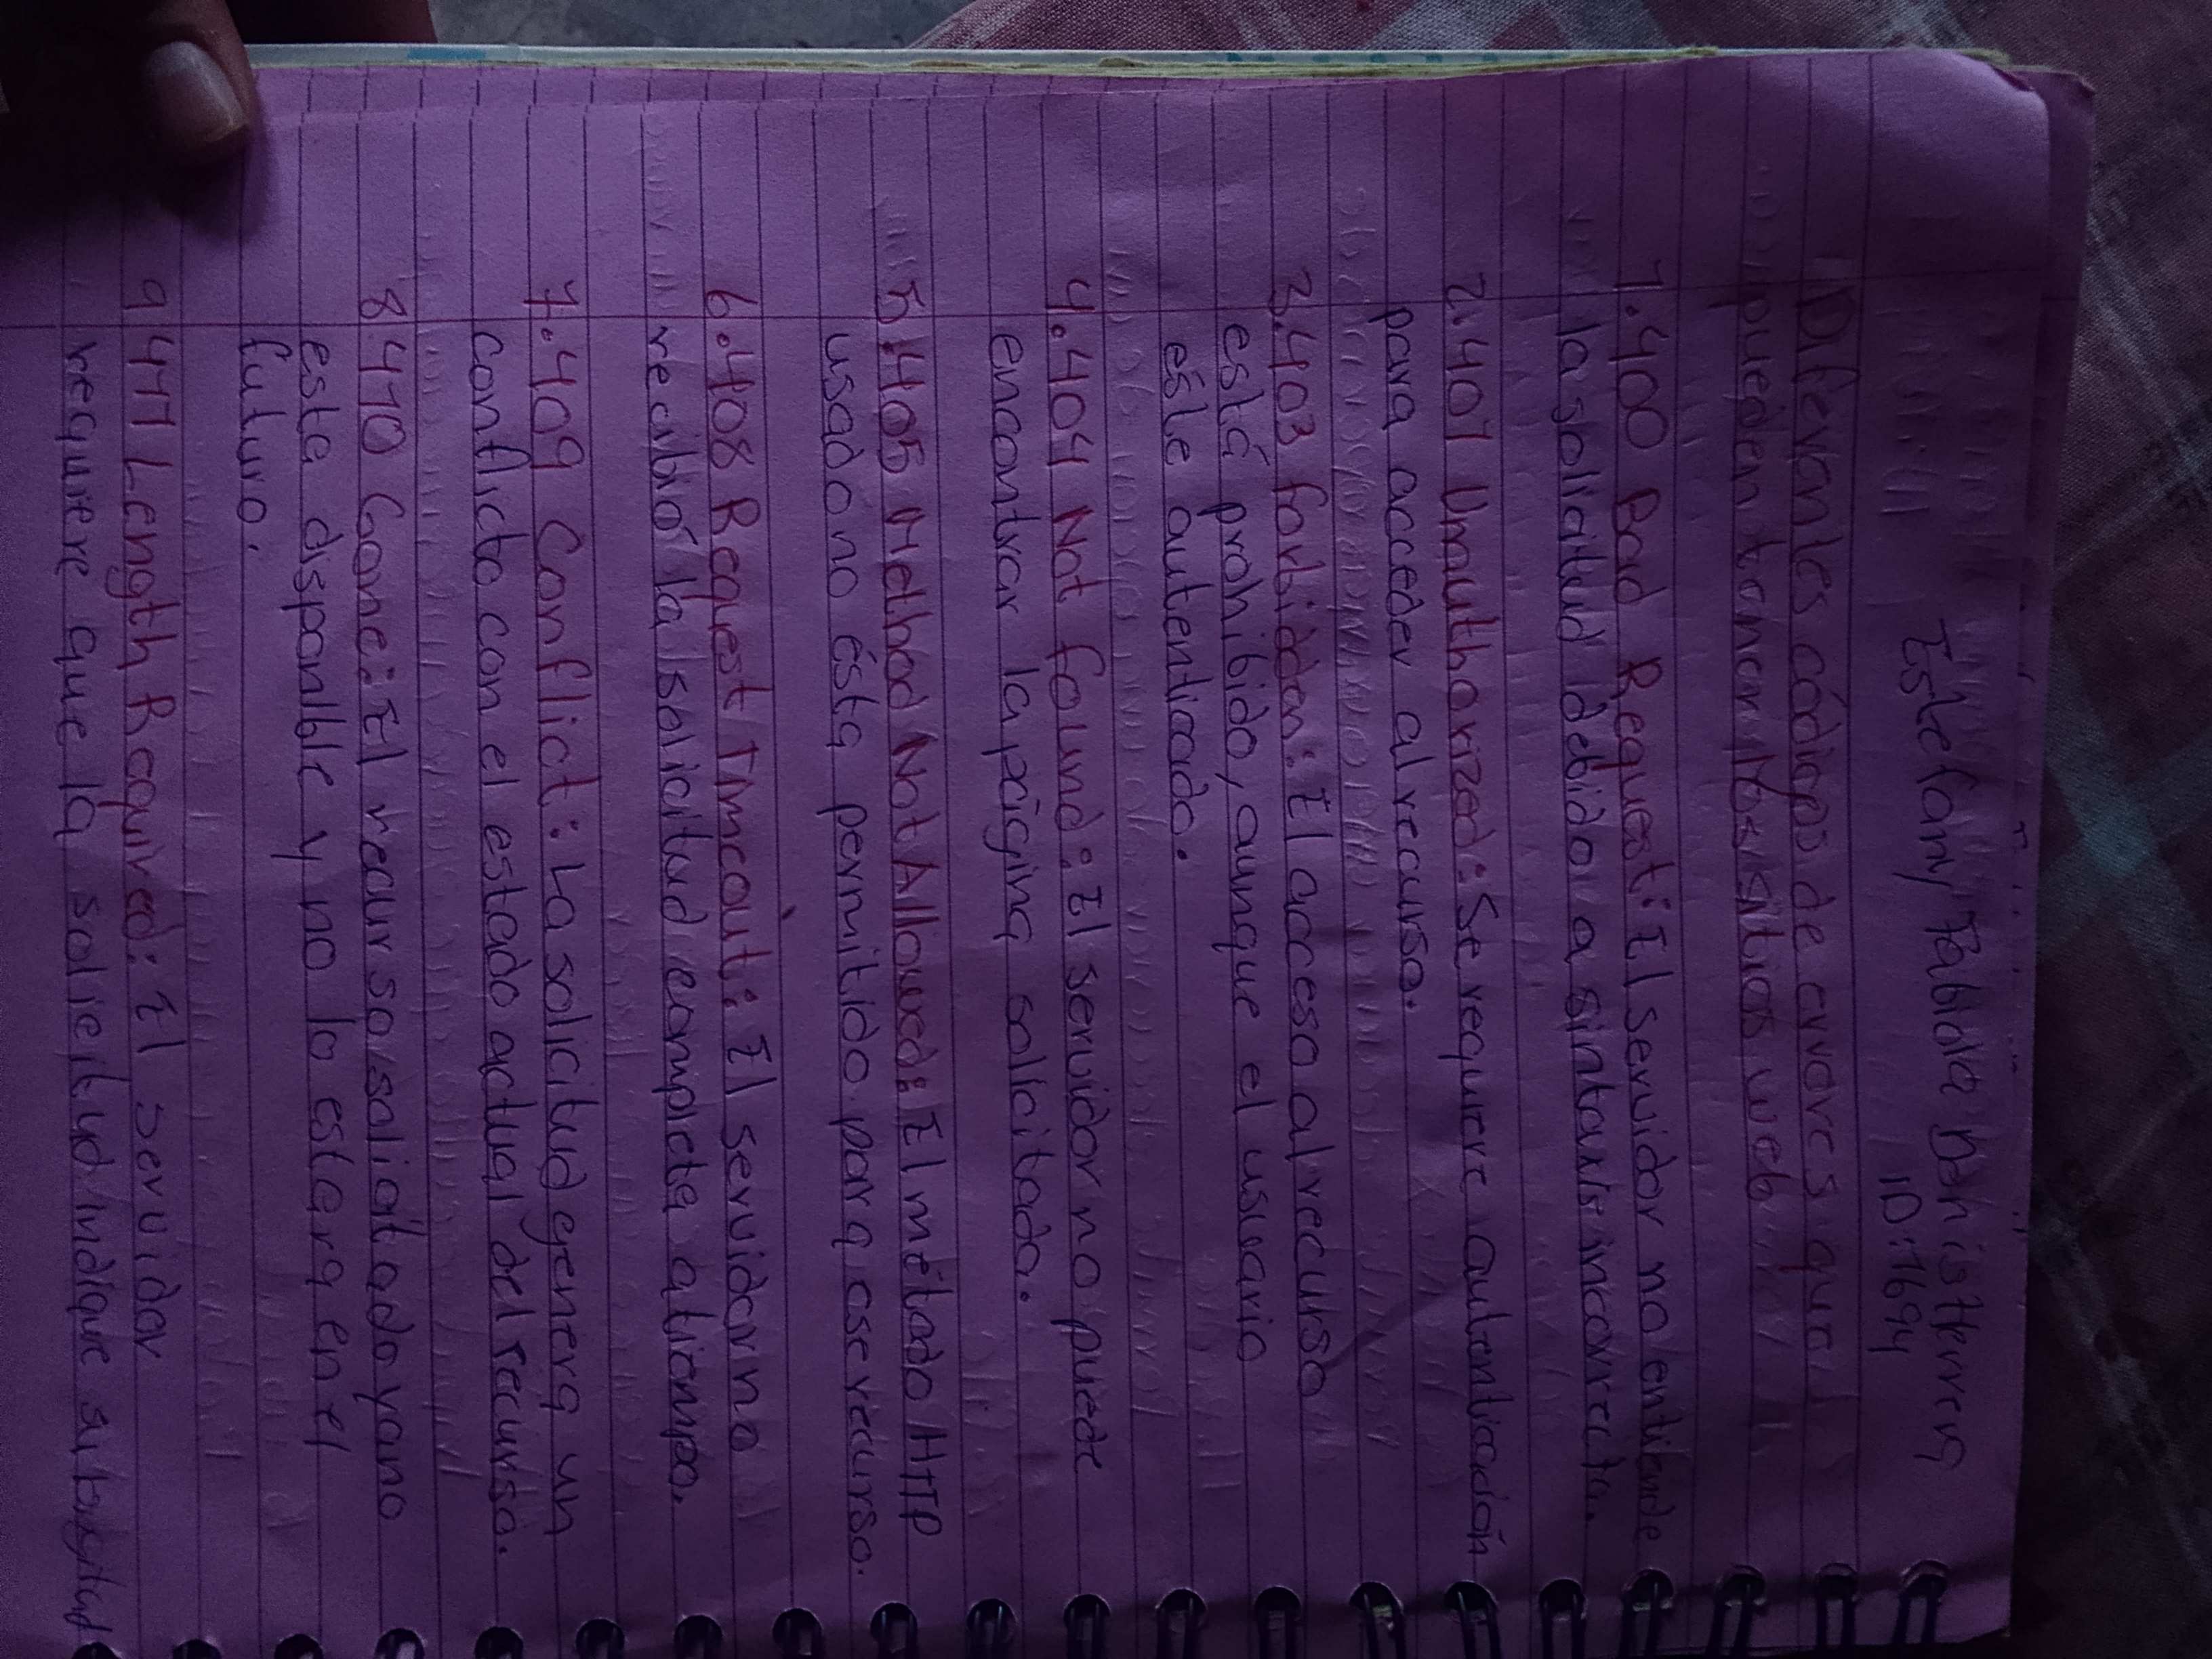 Estefany Fabiola
ID:1694
Diferentes códigos de errores que
pueden tener los sitios web.
1.400 Bad Request: El servidor no entiende
la solicitud debido a sintaxis incorrecta.
2.401 Unauthorized: Se requiere autenticación
para acceder al recurso.
3.403 forbidden: El acceso al recurso
está prohibido, aunque el usuario
esté autenticado.
4.404 Not found: El servidor no puede
encontrar la página solicitada.
5.405 Method Not Allowed: El método HTTP
usado no ésta permitido para ese recurso.
6.408 Request Timeout: El servidor no
recibió la solicitud completa a tiempo.
7.409 Conflict: La solicitud genera un
conflicto con el estado actual del recurso.
8.410 Gone: El recurso solicitado ya no
esta disponible y no lo estera en el
futuro.
9 411 Length Required: El servidor
requiere que la solicitud indique su longitud